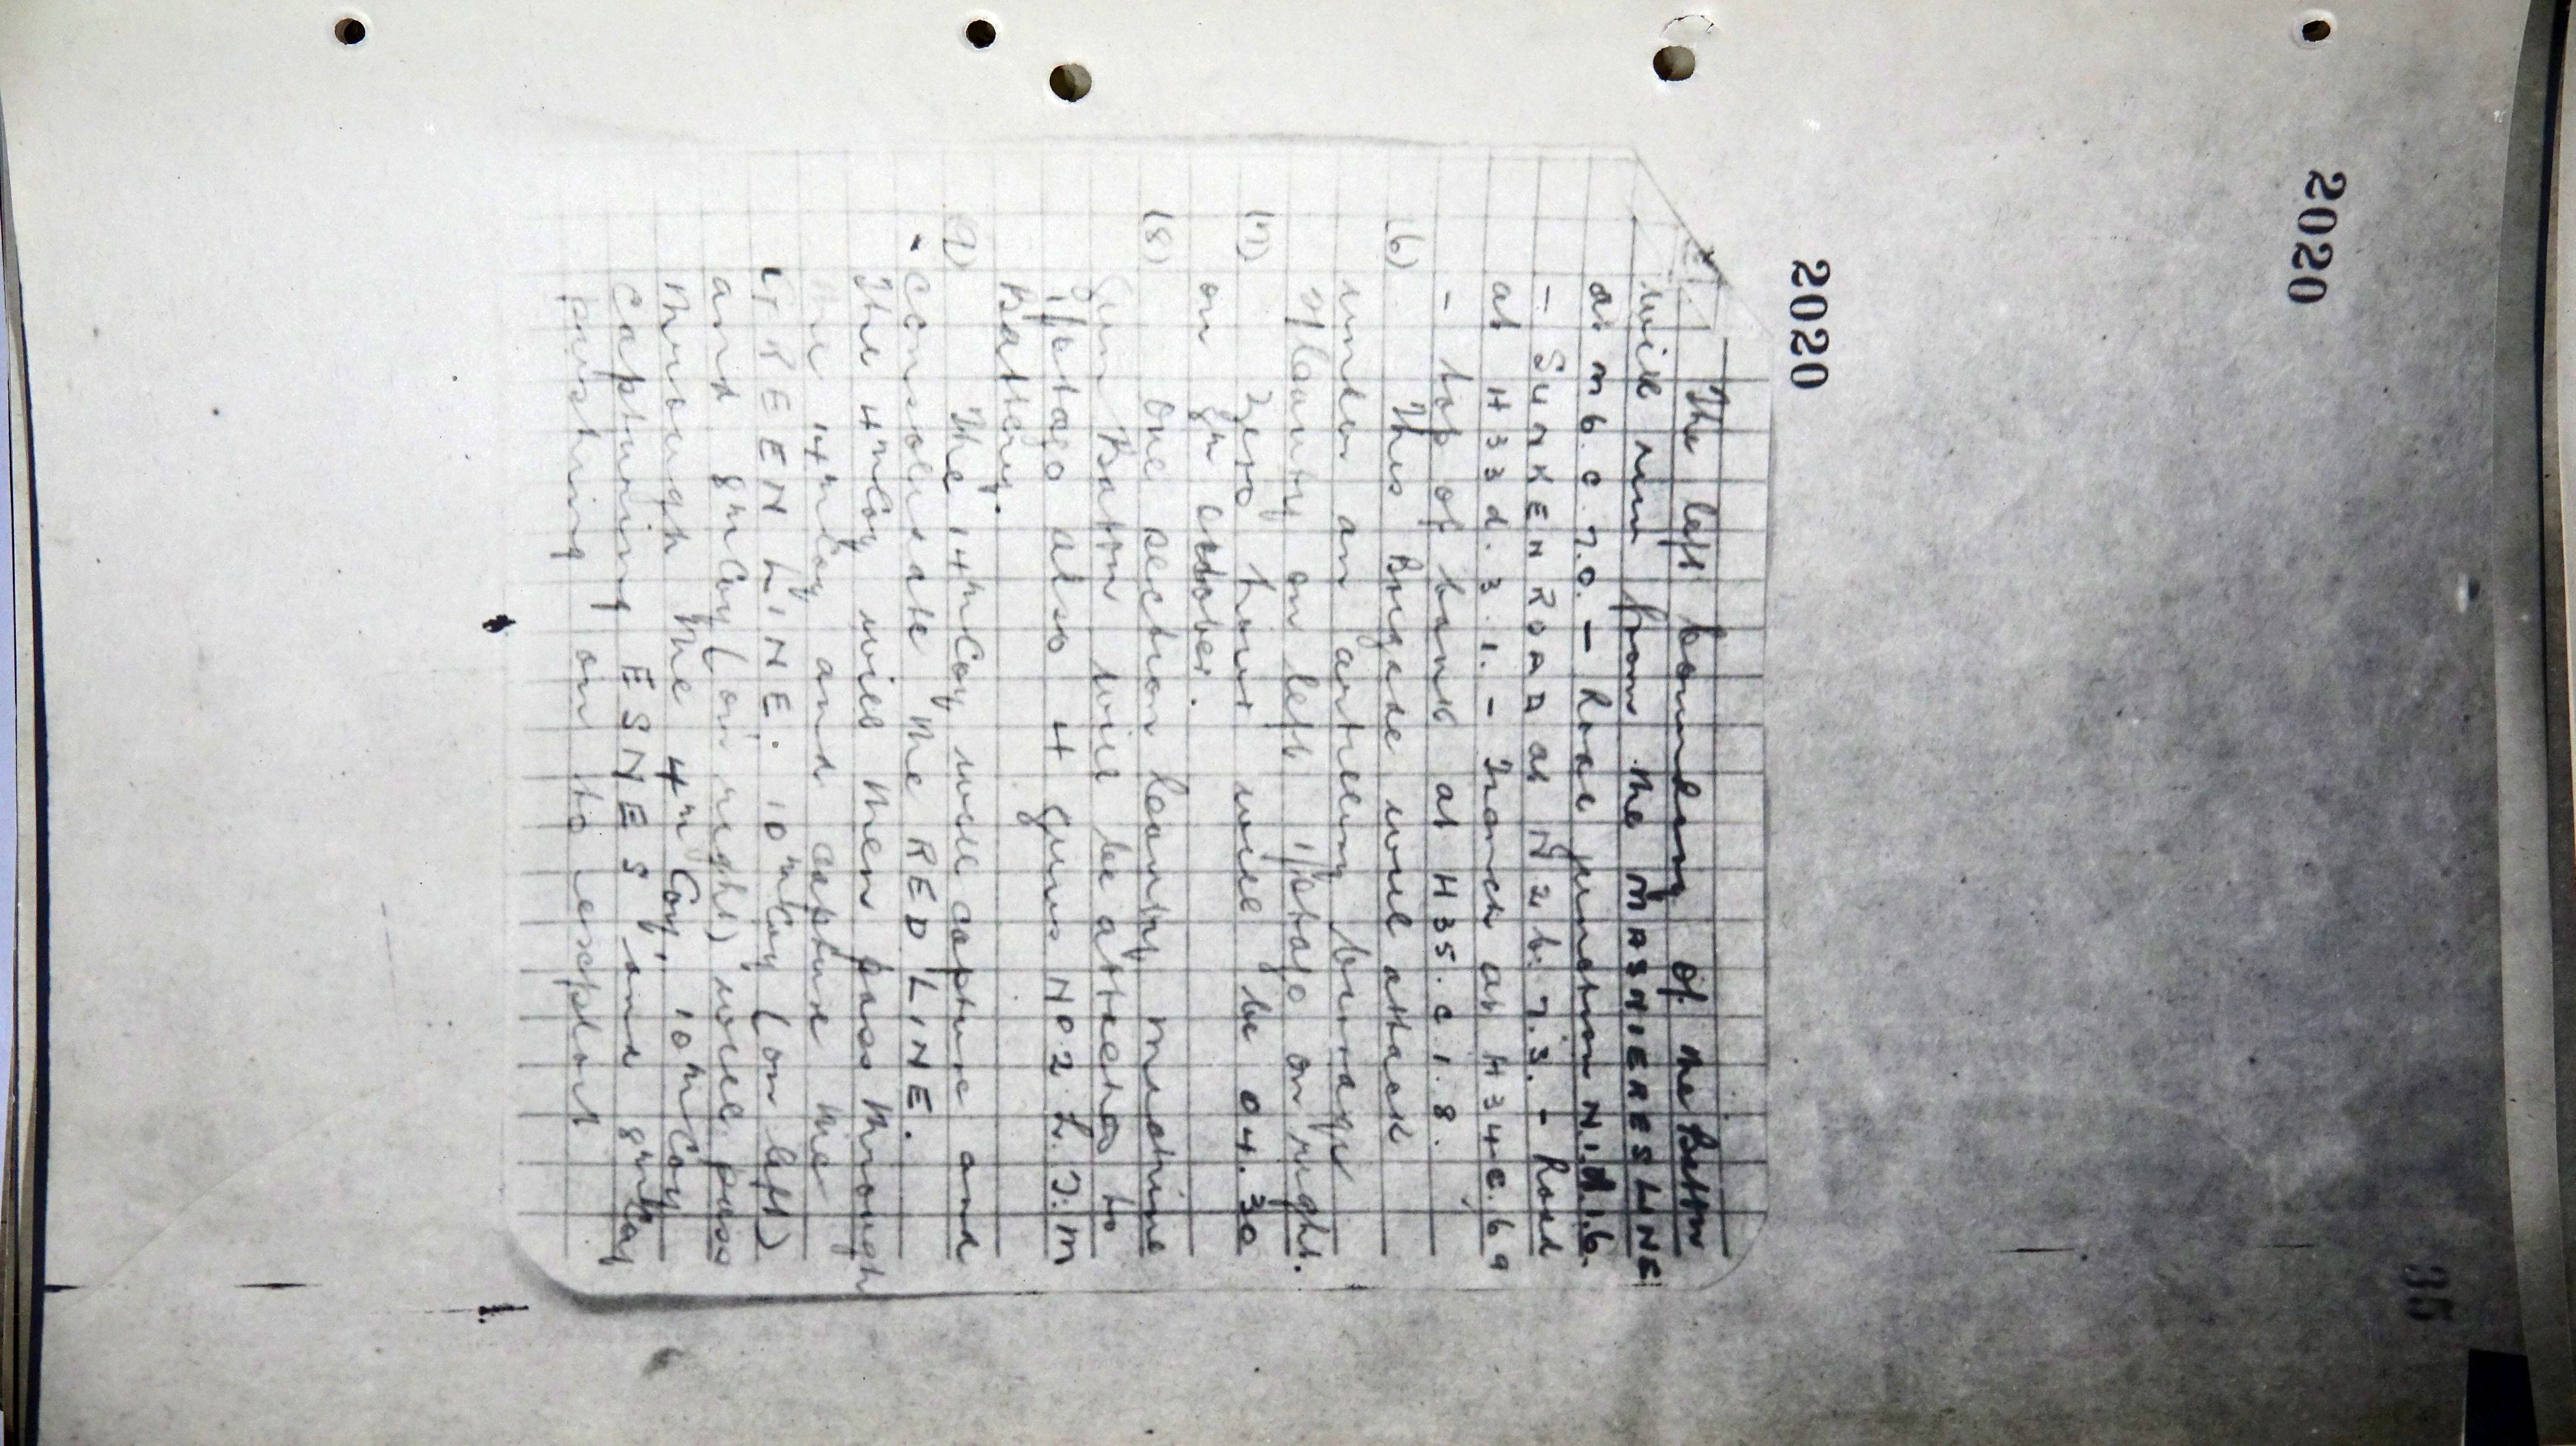 2020
35
2020
The left boundary of the Battn
will run from the MASNIERES LINE
at M 6. c. 7.0. - Road junction N.1.d.1.6.
- SUNKEN ROAD at N 2 b. 7.3. - Road
at H 33 d. 3. 1. - Trench at H 34 c. 6 9
- top of bank at H 35. c 1. 8.
(6) This Brigade will attack
under an artillery barrage
on left on right.
(7) Zero hour will be 04.30
on 8th October.
(8) One section Leading Machine
Gun Battn will be attached to
also 4 guns No 2 L.T.M
Battery.
(9) The 14th Coy will capture and
consolidate the RED LINE.
The 4th Coy will then pass through
the 14th Coy and capture the
GREEN LINE. 10th Coy (on left)
and 8th Coy (on right) will pass
through the 4th Coy, 10th Coy
capturing ESNES and 8th Coy
pushing on to exploit